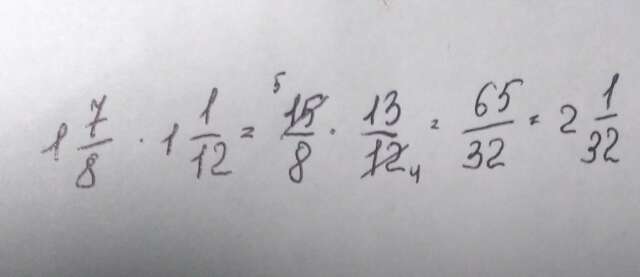 1 7/8 · 1 1/12 = 5 15/8 · 13/12 4 = 65/32 = 2 1/32